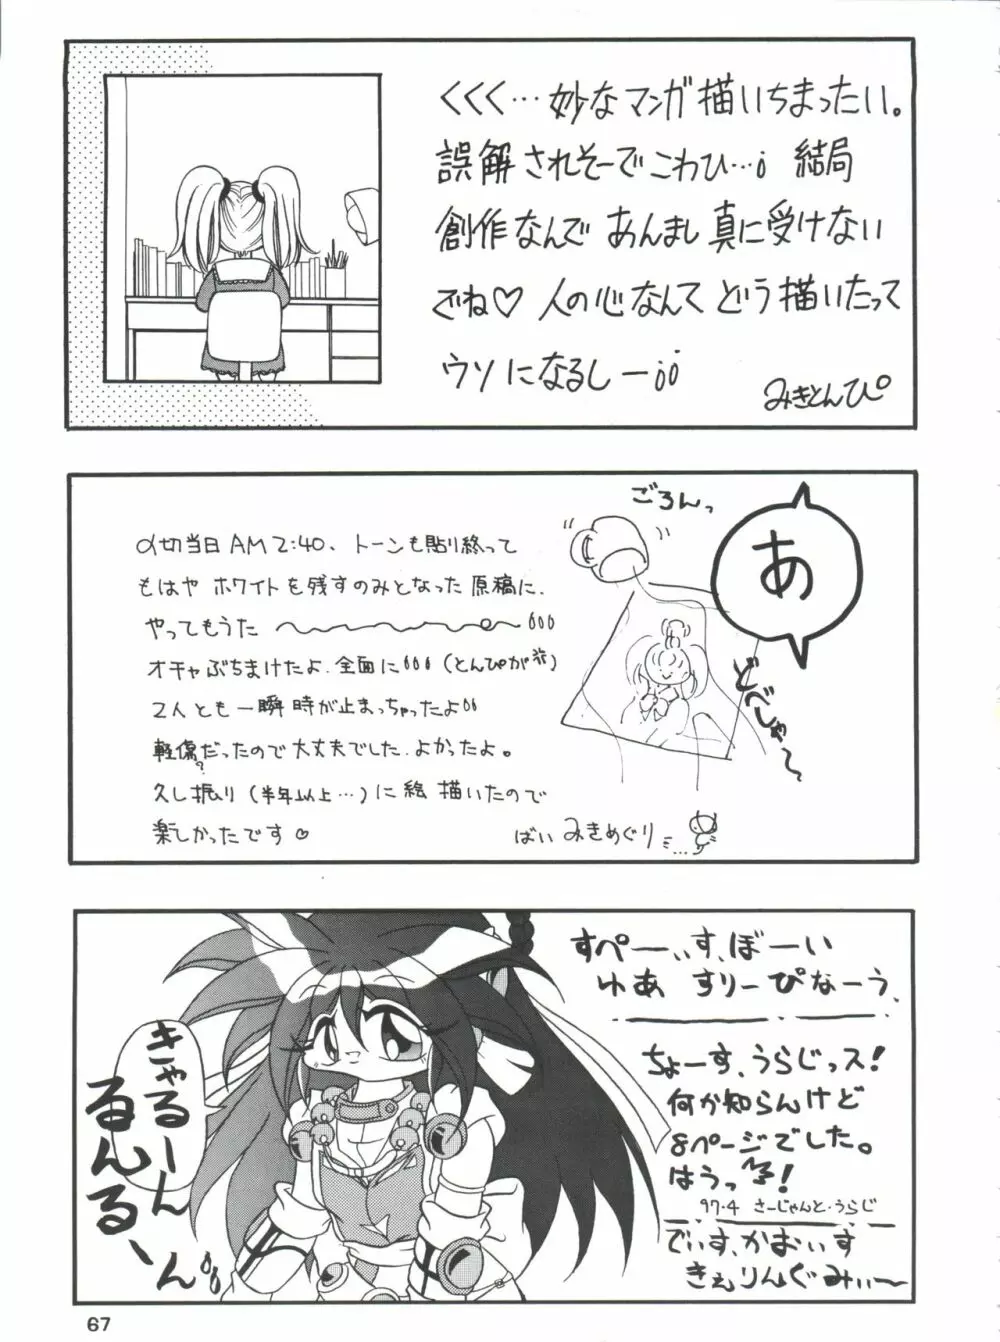 くくく…妙なマンガ描いちまったい。
誤解されそーでこわひ…¡ 結局
創作なんで あんまし真に受けない
でね♡ 人の心なんて どう描いたって
ウソになるしー¡¡
みきとんぴ
ごろんっ
あ
〆切当日AM2:40、トーンも貼り終って
もはや ホワイトを残すのみとなった 原稿に、
やってもうた
オチャぶちまけたよ.全面に(とんぴが)
2人とも一瞬 時が止まっちゃったよ
軽傷だったので大丈夫でした.よかったよ。
?
久し振り(半年以上…)に絵 描いたので
楽しかったです♡
どべしゃ〜
ばい みきめぐり
きゃるーん
るんるんん
すぺーす、ぼーい
ゆあ すりーぴなーう、
ちょーす、うらじっス!
何か知らんけど
8ページでした。
はうっ!
97.4 さーじゃんと・うらじ
でぃす、かおいす
きぇりんぐみぃ〜
67